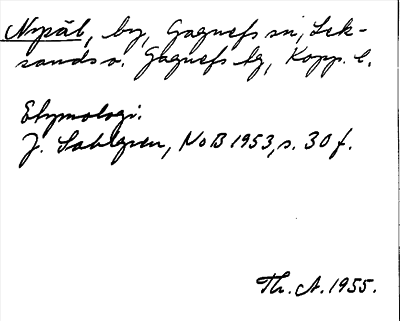 Nysäl, by, Gagnefs sn, Lek-
sands o. Gagnefs tg, Kopp. l.
Etymologi.
J. Sahlgren, NoB 1953, s. 30 f.
Th. A. 1955.